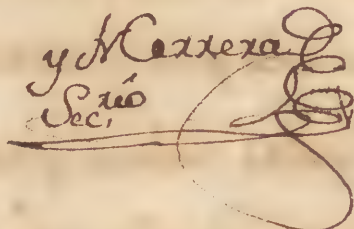 y Herrera
Sec.rio